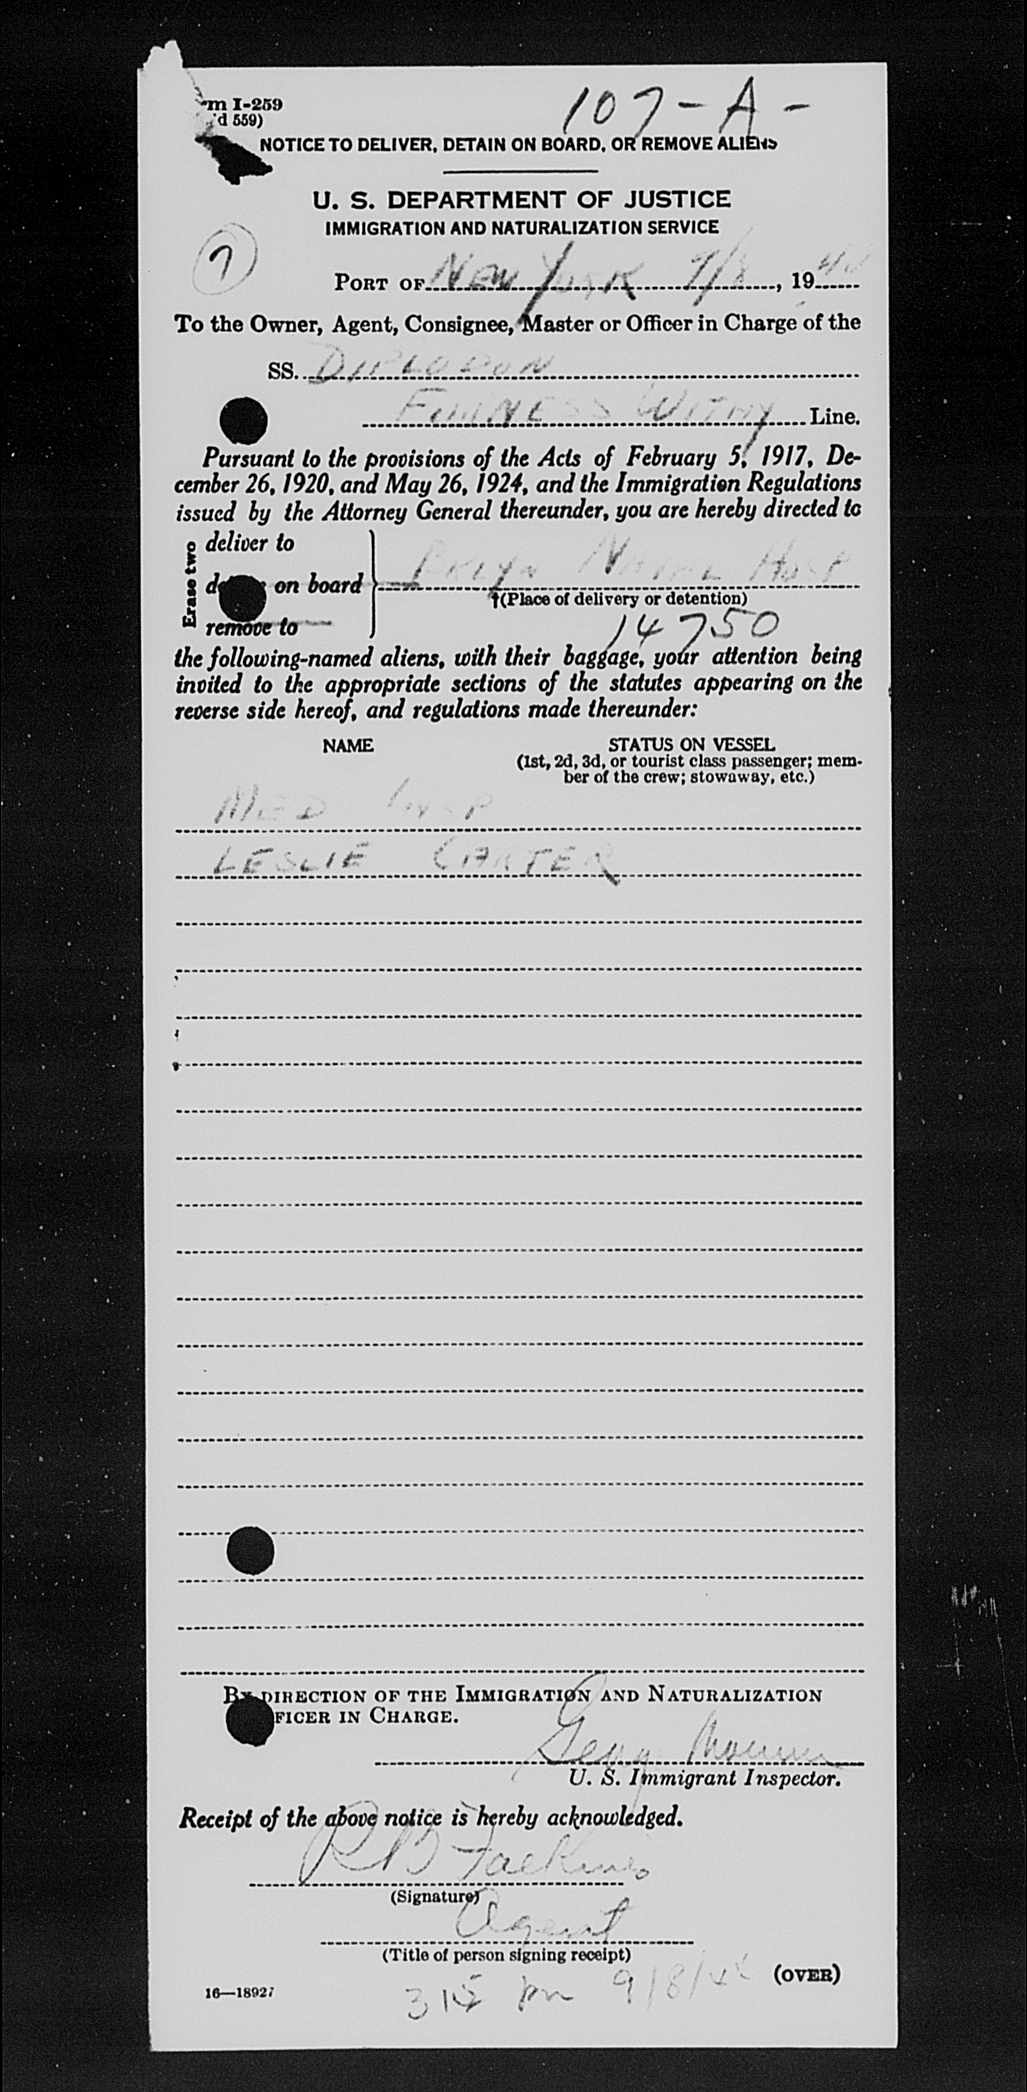 107-A-
m I-259
d 559)
NOTICE TO DELIVER, DETAIN ON BOARD, OR REMOVE ALIENS
U. S. DEPARTMENT OF JUSTICE
IMMIGRATION AND NATURALIZATION SERVICE
7
PORT OF NEW YORK 9/8, 19
To the Owner, Agent, Consignee, Master or Officer in Charge of the
SS. DIPLODON
FURNESS WITHY Line.
Pursuant to the provisions of the Acts of February 5, 1917, De-
cember 26, 1920, and May 26, 1924, and the Immigration Regulations
issued by the Attorney General thereunder, you are hereby directed to
Erase two
deliver to
on board
remove to
BKLYN NAVAL HOSP
†(Place of delivery or detention)
14750
the following-named aliens, with their baggage, your attention being
invited to the appropriate sections of the statutes appearing on the
reverse side hereof, and regulations made thereunder:
NAME
STATUS ON VESSEL
(1st, 2d, 3d, or tourist class passenger; mem-
ber of the crew; stowaway, etc.)
MED INSP
LESLIE CARTER
BY DIRECTION OF THE IMMIGRATION AND NATURALIZATION
FICER IN CHARGE.
U. S. Immigrant Inspector.
Receipt of the above notice is hereby acknowledged.
R B
(Signature)
Agent
(Title of person signing receipt)
(OVER)
16—18927
315 pm 9/8/44